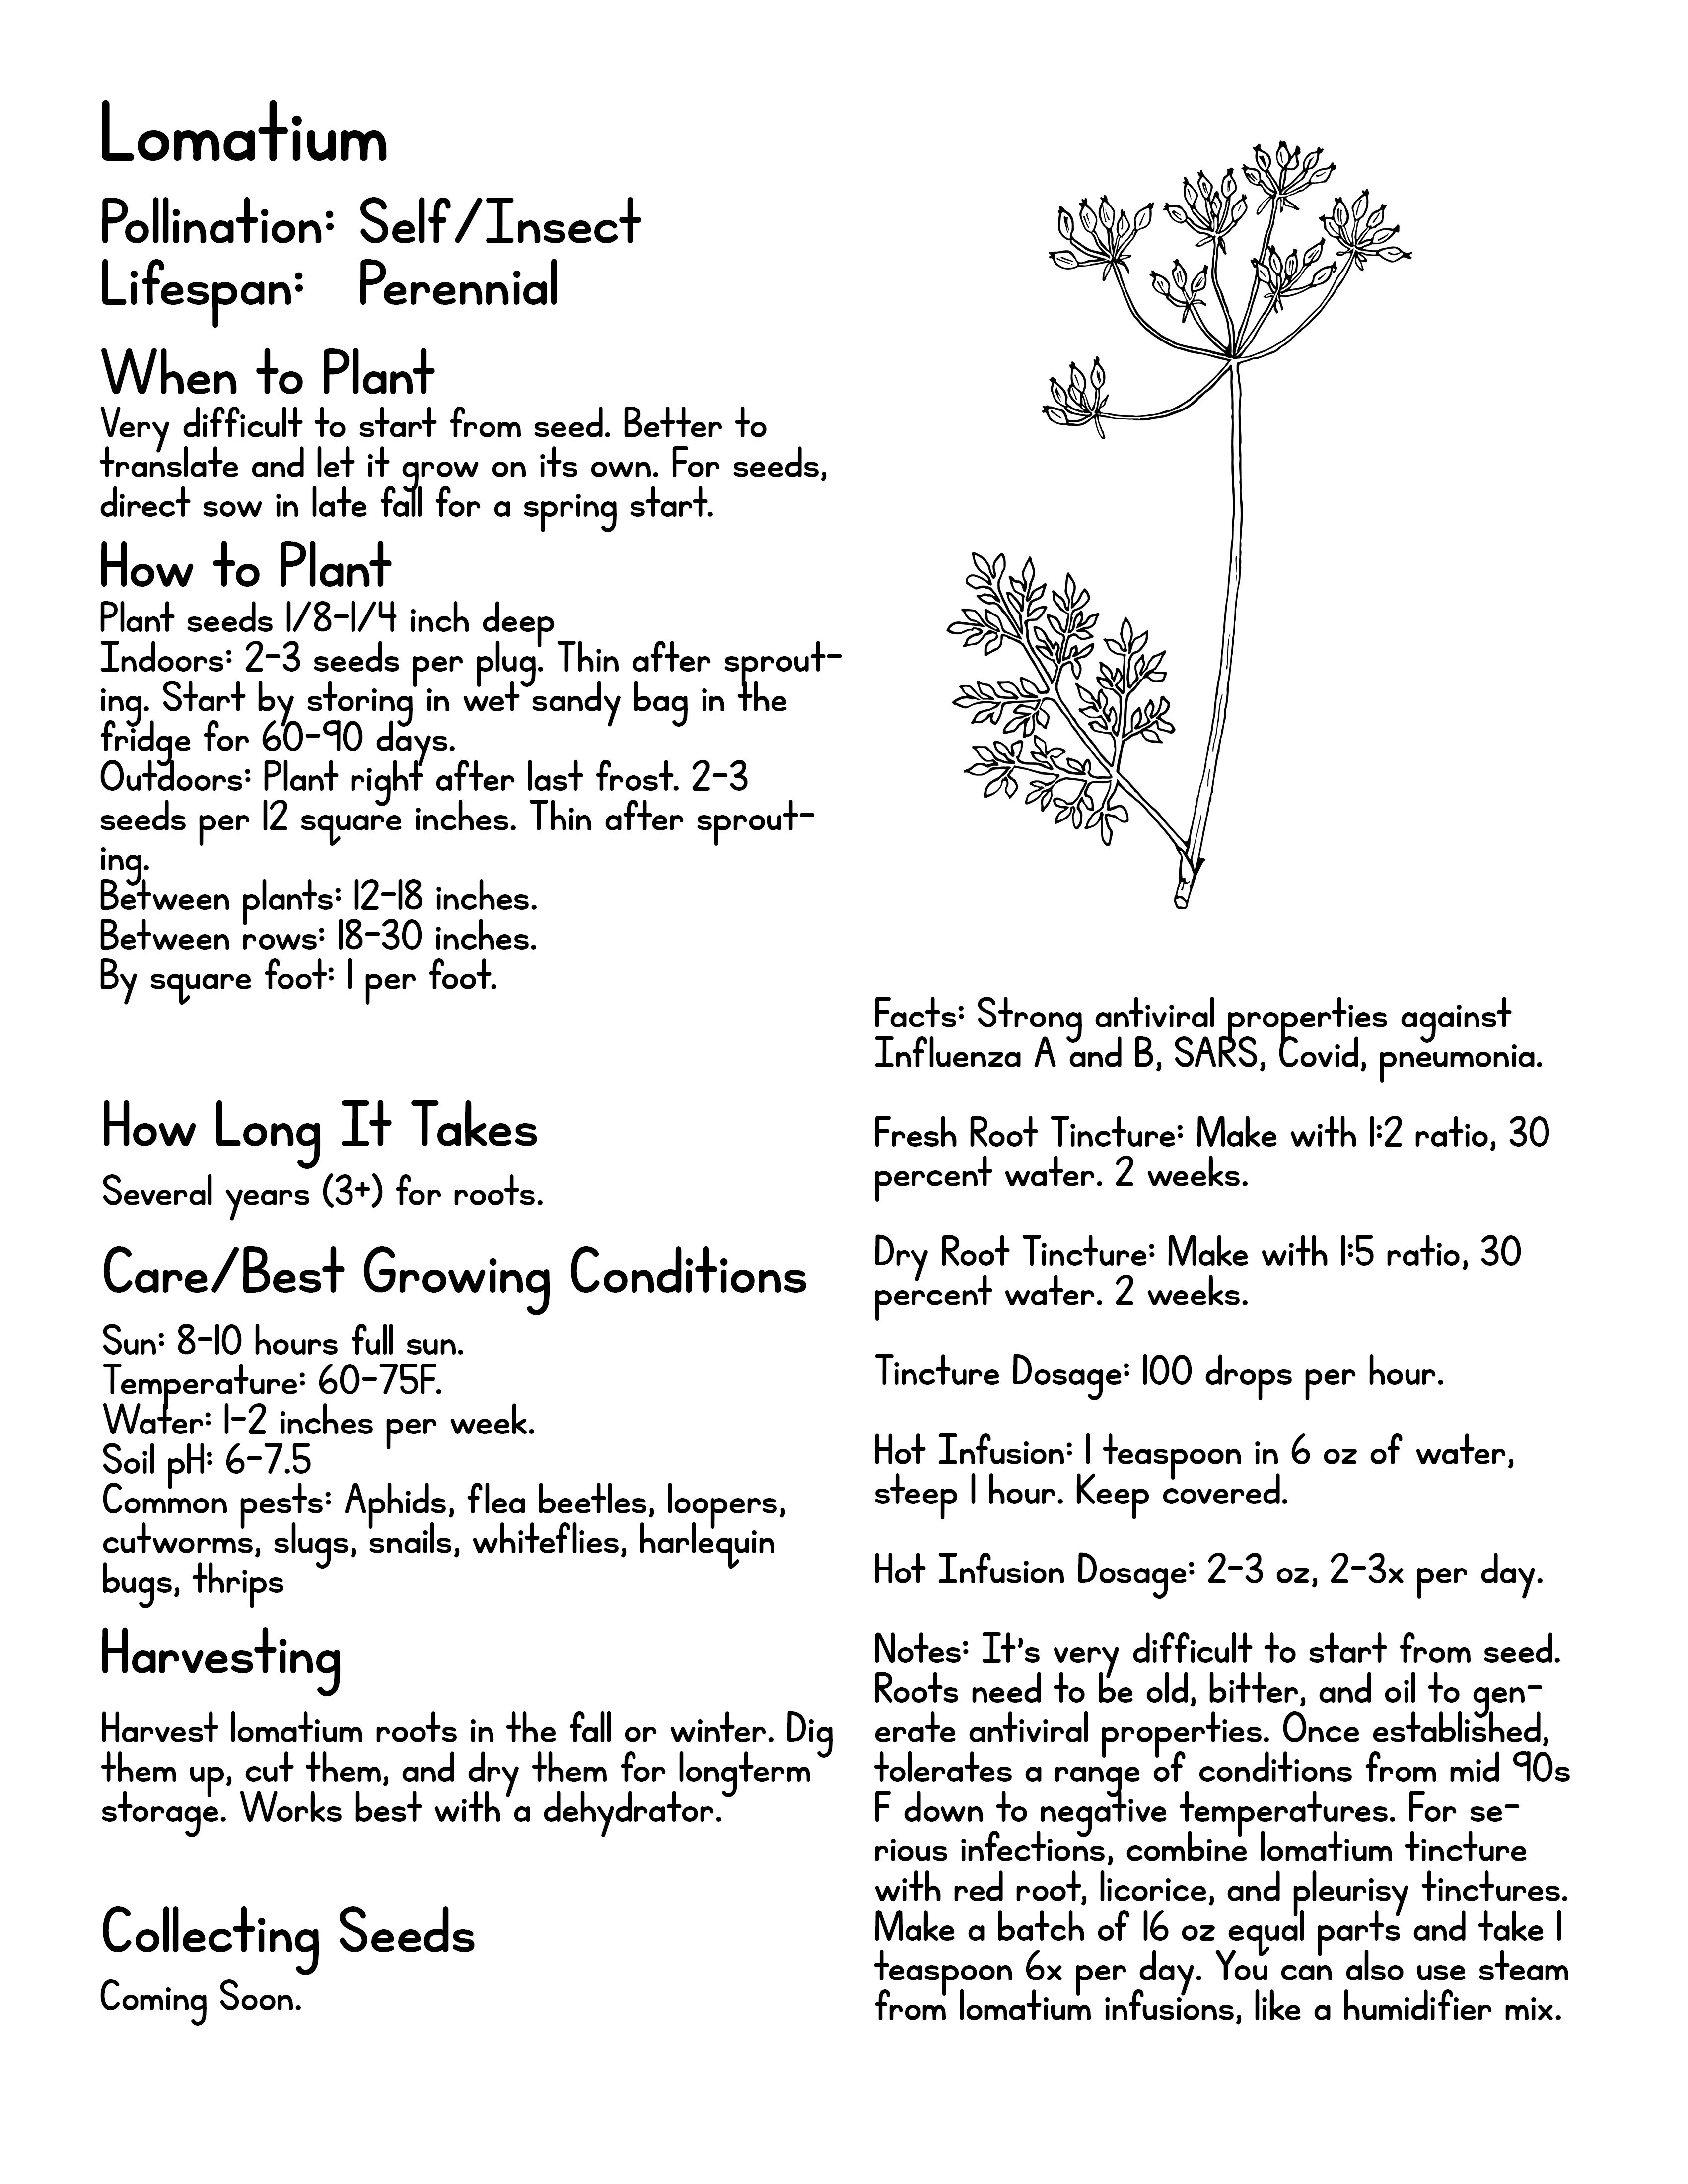 Lomatium
Pollination: Self/Insect
Lifespan: Perennial
When to Plant
Very difficult to start from seed. Better to
translate and let it grow on its own. For seeds,
direct sow in late fall for a spring start.
How to Plant
Plant seeds 1/8-1/4 inch deep
Indoors: 2-3 seeds per plug. Thin after sprout-
ing. Start by storing in wet sandy bag in the
fridge for 60-90 days.
Outdoors: Plant right after last frost. 2-3
seeds per 12 square inches. Thin after sprout-
ing.
Between plants: 12-18 inches.
Between rows: 18-30 inches.
By square foot: 1 per foot.
How Long It Takes
Several years (3+) for roots.
Care/Best Growing Conditions
Sun: 8-10 hours full sun.
Temperature: 60-75F.
Water: 1-2 inches per week.
Soil pH: 6-7.5
Common pests: Aphids, flea beetles, loopers,
cutworms, slugs, snails, whiteflies, harlequin
bugs, thrips
Harvesting
Harvest lomatium roots in the fall or winter. Dig
them up, cut them, and dry them for longterm
storage. Works best with a dehydrator.
Collecting Seeds
Coming Soon.
Facts: Strong antiviral properties against
Influenza A and B, SARS, Covid, pneumonia.
Fresh Root Tincture: Make with 1:2 ratio, 30
percent water. 2 weeks.
Dry Root Tincture: Make with 1:5 ratio, 30
percent water. 2 weeks.
Tincture Dosage: 100 drops per hour.
Hot Infusion: 1 teaspoon in 6 oz of water,
steep 1 hour. Keep covered.
Hot Infusion Dosage: 2-3 oz, 2-3x per day.
Notes: It's very difficult to start from seed.
Roots need to be old, bitter, and oil to gen-
erate antiviral properties. Once established,
tolerates a range of conditions from mid 90s
F down to negative temperatures. For se-
rious infections, combine lomatium tincture
with red root, licorice, and pleurisy tinctures.
Make a batch of 16 oz equal parts and take 1
teaspoon 6x per day. You can also use steam
from lomatium infusions, like a humidifier mix.